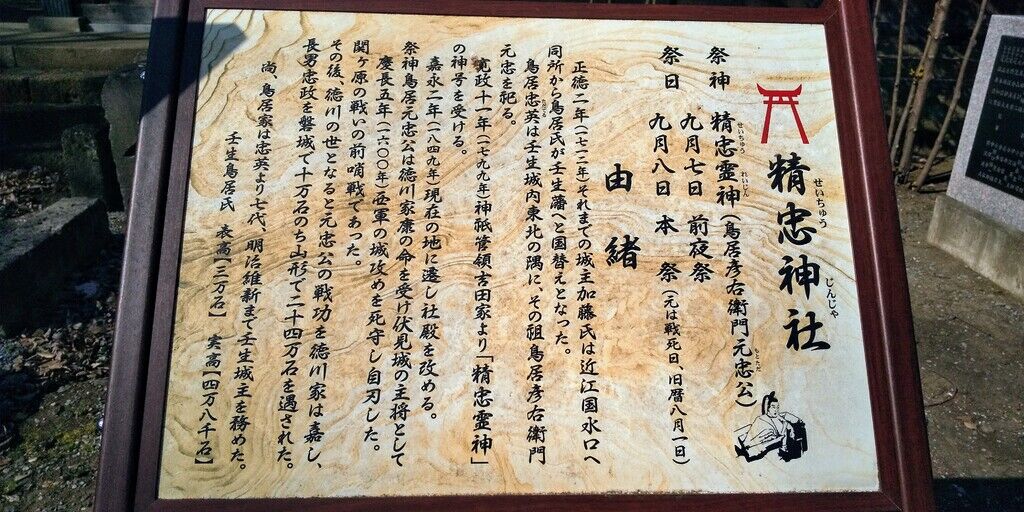 精忠神社
せいちゅう じんじゃ
祭神 精忠霊神(鳥居彦右衛門元忠公)
せいちゅう れいじん もとただ
祭日 九月七日 前夜祭
九月八日 本祭(元は戦死日、旧暦八月一日)
由緒
正徳二年(一七一二)それまでの城主加藤氏は近江国水口へ
同所から鳥居氏が壬生藩へと国替えとなった。
鳥居忠英は壬生城内東北の隅に、その祖鳥居彦右衛門
ただてる
元忠を祀る。
寛政十一年(一七九九年)神祇管領吉田家より「精忠霊神」
の神号を受ける。
嘉永二年(一八四九年)現在の地に遷し社殿を改める。
祭神鳥居元忠公は徳川家康の命を受け伏見城の主将として
慶長五年(一六〇〇年)西軍の城攻めを死守し自刃した。
関ヶ原の戦いの前哨戦であった。
その後、徳川の世となると元忠公の戦功を徳川家は嘉し、
長男忠政を磐城で十万石のち山形で二十四万石を遇された。
尚、鳥居家は忠英より七代、明治維新まで壬生城主を務めた。
壬生鳥居氏 表高[三万石] 実高[四万八千石]